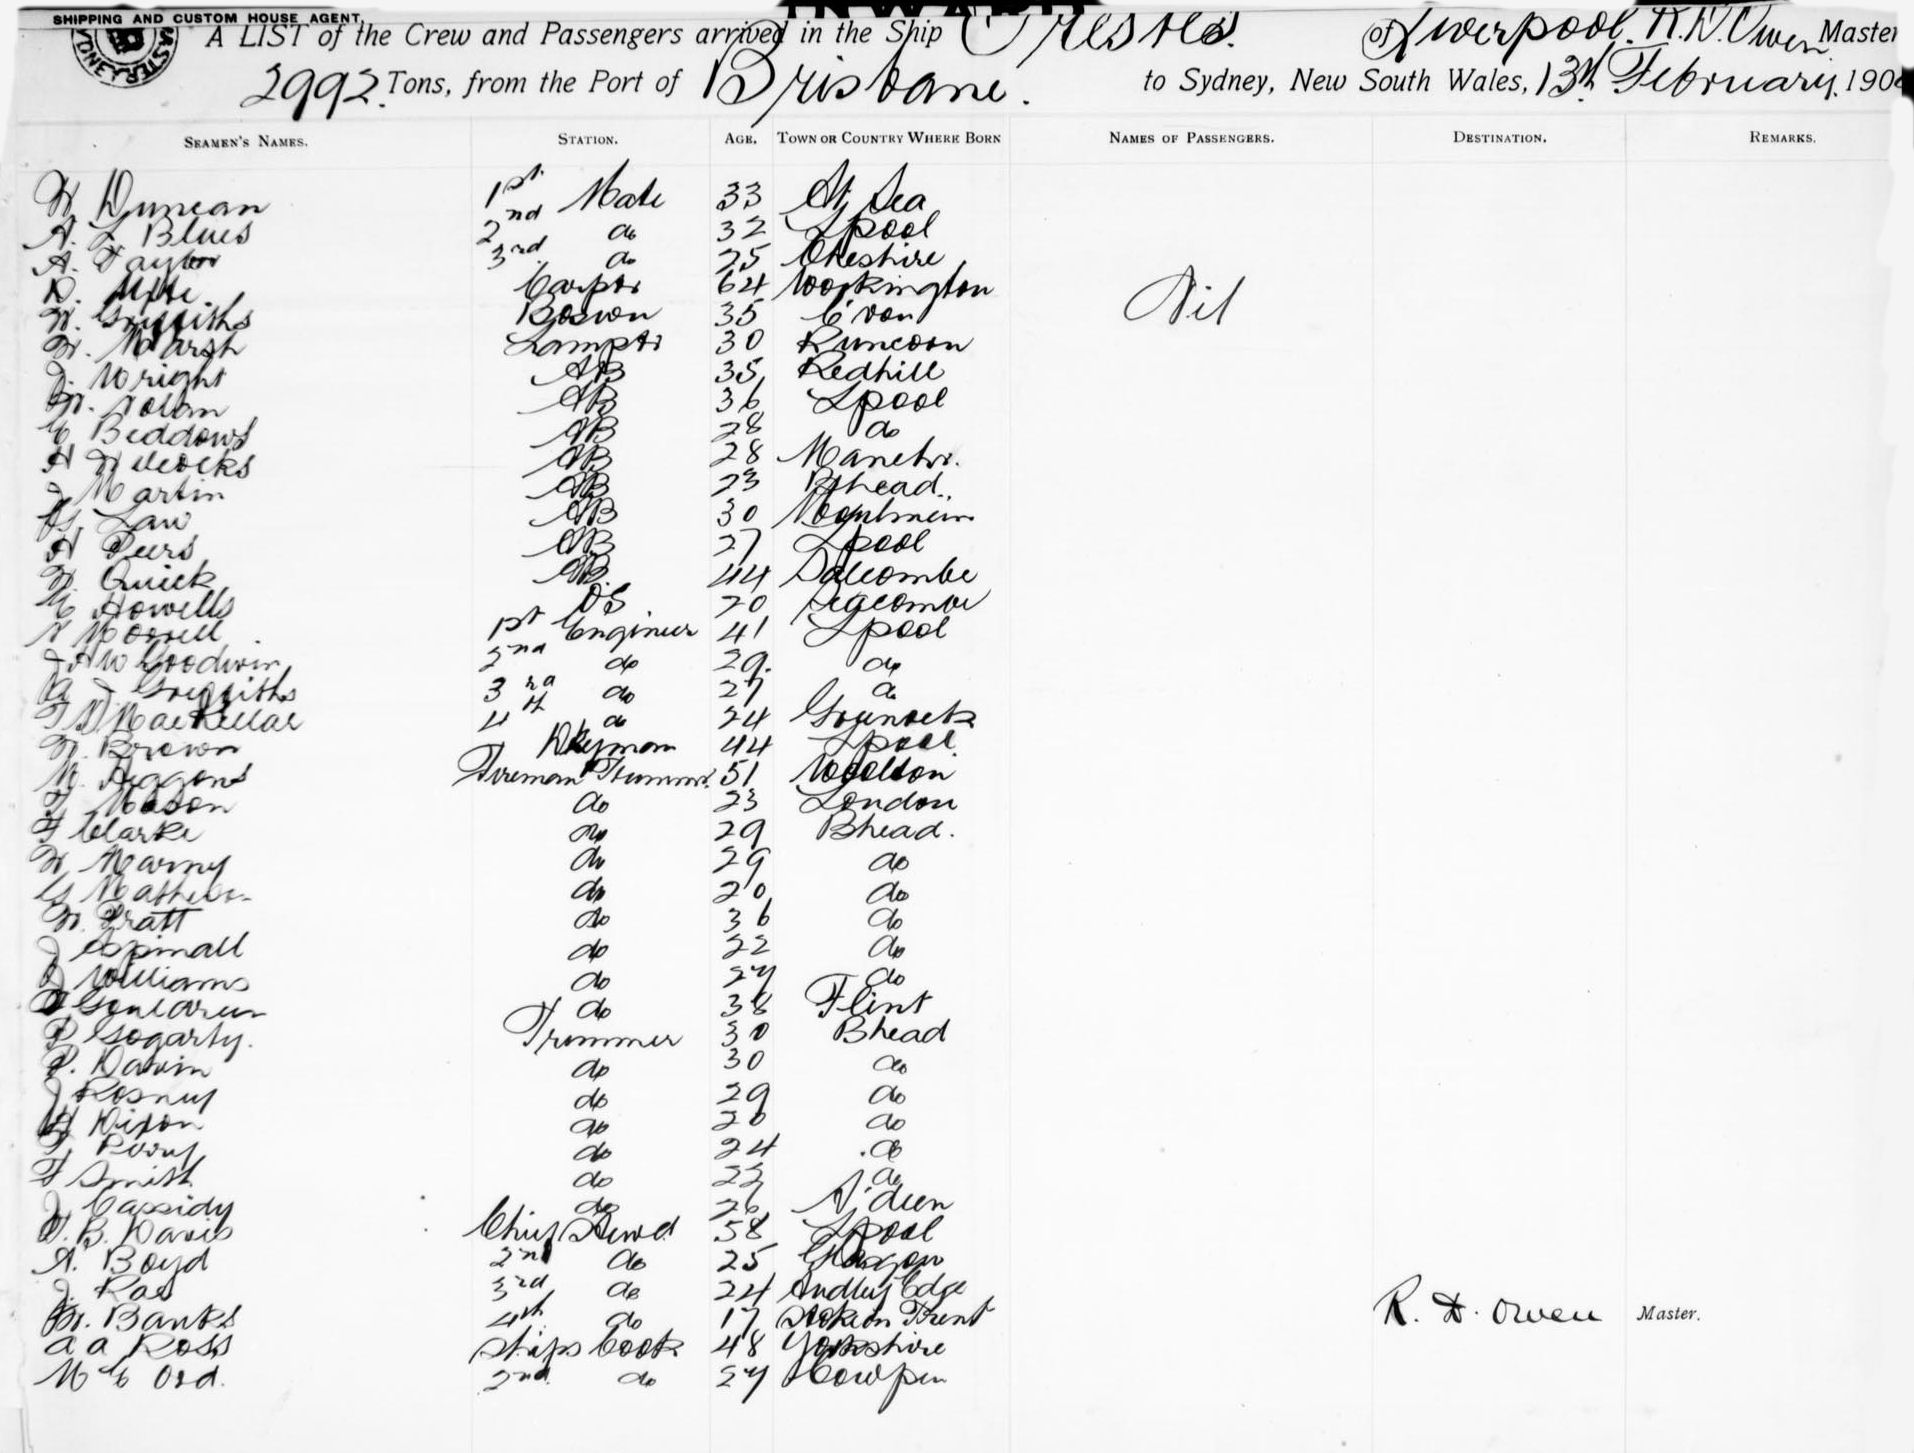 SHIPPING AND CUSTOM HOUSE AGENT,
INWARD
A LIST of the Crew and Passengers arrived in the Ship of Liverpool. R. D. Owen Master
2992 Tons, from the Port of Brisbane. to Sydney, New South Wales, 13th February. 190
SEAMEN'S NAMES. STATION. AGE. TOWN OR COUNTRY WHERE BORN NAMES OF PASSENGERS. DESTINATION. REMARKS.
W Duncan 1st Mate 33 At Sea
A. L Blues 2nd do 32 Lpool
A. Taylor 3rd do 25 Cheshire
D. Carptr 64 Workington Nil
W. Griffiths Boswn 35 C'von
W. Marsh Lamptr 30 Runcorn
J. Wright AB 35 Redhill
M. Nolan AB 36 Lpool
E Beddows AB 28 do
H Wilcocks AB 28 Manchr.
J Martin AB 23 Bhead.
G. Law AB 30
A Peers AB 27 Lpool
W. Quick AB 44 Salcombe
E Howells OS 20 Segcombe
Morrell 1st Engineer 41 Lpool
J A W Goodwin 2nd do 29. do
A J Griffiths 3rd do 27 do
T D MacKellar 4th do 24 Grenock
W. Brown Dkyman 44 Lpool.
M. Higgons Fireman Trimmr. 51 Woolton
T Mason do 23 London
F Clarke do 29 Bhead.
W Marny do 29 do
G Mathews do 20 do
W. Pratt do 36 do
J Aspinall do 22 do
J Williams do 27 do
do 38 Flint
P Gogarty. Trimmer 30 Bhead
P. Davin do 30 do
J Rosney do 29 do
H Dixon do 20 do
T, do 24 do
F Smith do 22 do
J Cassidy do 26 A'deen
B. Davis Chief Stewd 58 Lpool
A. Boyd 2nd do 25 Glasgow
J. Rae 3rd do 24 Edge
W. Banks 4th do 17 Stoke on Trent R. D. Owen Master.
A A Ross Ships Cook 48 Yorkshire
M E Ord. 2nd. do 27 Cowpen